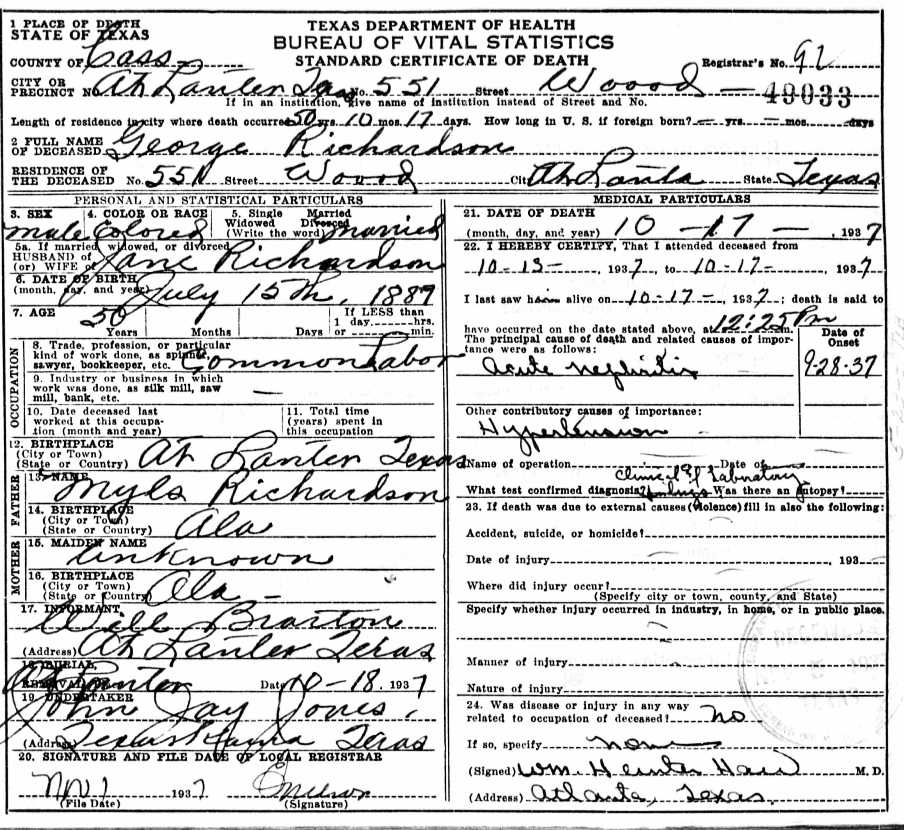 1 PLACE OF DEATH
STATE OF TEXAS
TEXAS DEPARTMENT OF HEALTH
BUREAU OF VITAL STATISTICS
STANDARD CERTIFICATE OF DEATH
COUNTY OF Cass
Registrar's No. 92
CITY OR
PRECINCT NO. At Lanter Texas No. 551 Street Woood
49033
If in an institution, give name of institution instead of Street and No.
Length of residence in city where death occurred 50 yrs. 10 mos. 17 days. How long in U. S. if foreign born? — yrs. — mos. days
2 FULL NAME
OF DECEASED George Richardson
RESIDENCE OF
THE DECEASED No. 551 Street Woood City At Lanta State Texas
PERSONAL AND STATISTICAL PARTICULARS
3. SEX 4. COLOR OR RACE 5. Single Married
Widowed Divorced
(Write the word)
male Colored married
5a. If married, widowed, or divorced
HUSBAND OF
(or) WIFE of Jane Richardson
6. DATE OF BIRTH
(month, day, and year) July 15th, 1887
7. AGE 50 If LESS than
Years Months Days 1 day hrs.
or min.
OCCUPATION
8. Trade, profession, or particular
kind of work done, as spinner,
sawyer, bookkeeper, etc. Common Labor
9. Industry or business in which
work was done, as silk mill, saw
mill, bank, etc. —
10. Date deceased last
worked at this occupa-
tion (month and year)
11. Total time
(years) spent in
this occupation
12. BIRTHPLACE
(City or Town)
(State or Country) At Lanter Texas
FATHER
13. NAME Myls Richardson
14. BIRTHPLACE
(City or Town)
(State or Country) Ala
MOTHER
15. MAIDEN NAME
unknown
16. BIRTHPLACE
(City or Town)
(State or Country) Ala —
17. INFORMANT
Will Braxton
(Address) At Lanter Texas
18. BURIAL,
REMOVAL
At Lanter Date 10-18. 1937
19. UNDERTAKER
John Jay Jones,
(Address) Texarkana Texas
20. SIGNATURE AND FILE DATE OF LOCAL REGISTRAR
Nov 1 1937
(File Date) (Signature)
MEDICAL PARTICULARS
21. DATE OF DEATH
(month, day, and year) 10 - 17 - , 1937
22. I HEREBY CERTIFY, That I attended deceased from
10-13- , 1937, to 10-17- 1937
I last saw him alive on 10-17- , 1937; death is said to
have occurred on the date stated above, at 12:25 Pm m.
The principal cause of death and related causes of impor-
tance were as follows:
Date of
Onset
Acute Nephritis 9-28-37
Other contributory causes of importance:
Hypertension
Name of operation Date of
Clinical & Laboratory
What test confirmed diagnosis? findings Was there an autopsy?
23. If death was due to external causes (violence) fill in also the following:
Accident, suicide, or homicide?
Date of injury , 193
Where did injury occur?
(Specify city or town, county, and State)
Specify whether injury occurred in industry, in home, or in public place.
Manner of injury
Nature of injury
24. Was disease or injury in any way
related to occupation of deceased? no
If so, specify none
(Signed) Wm. Hunter M. D.
(Address) Atlanta, Texas.